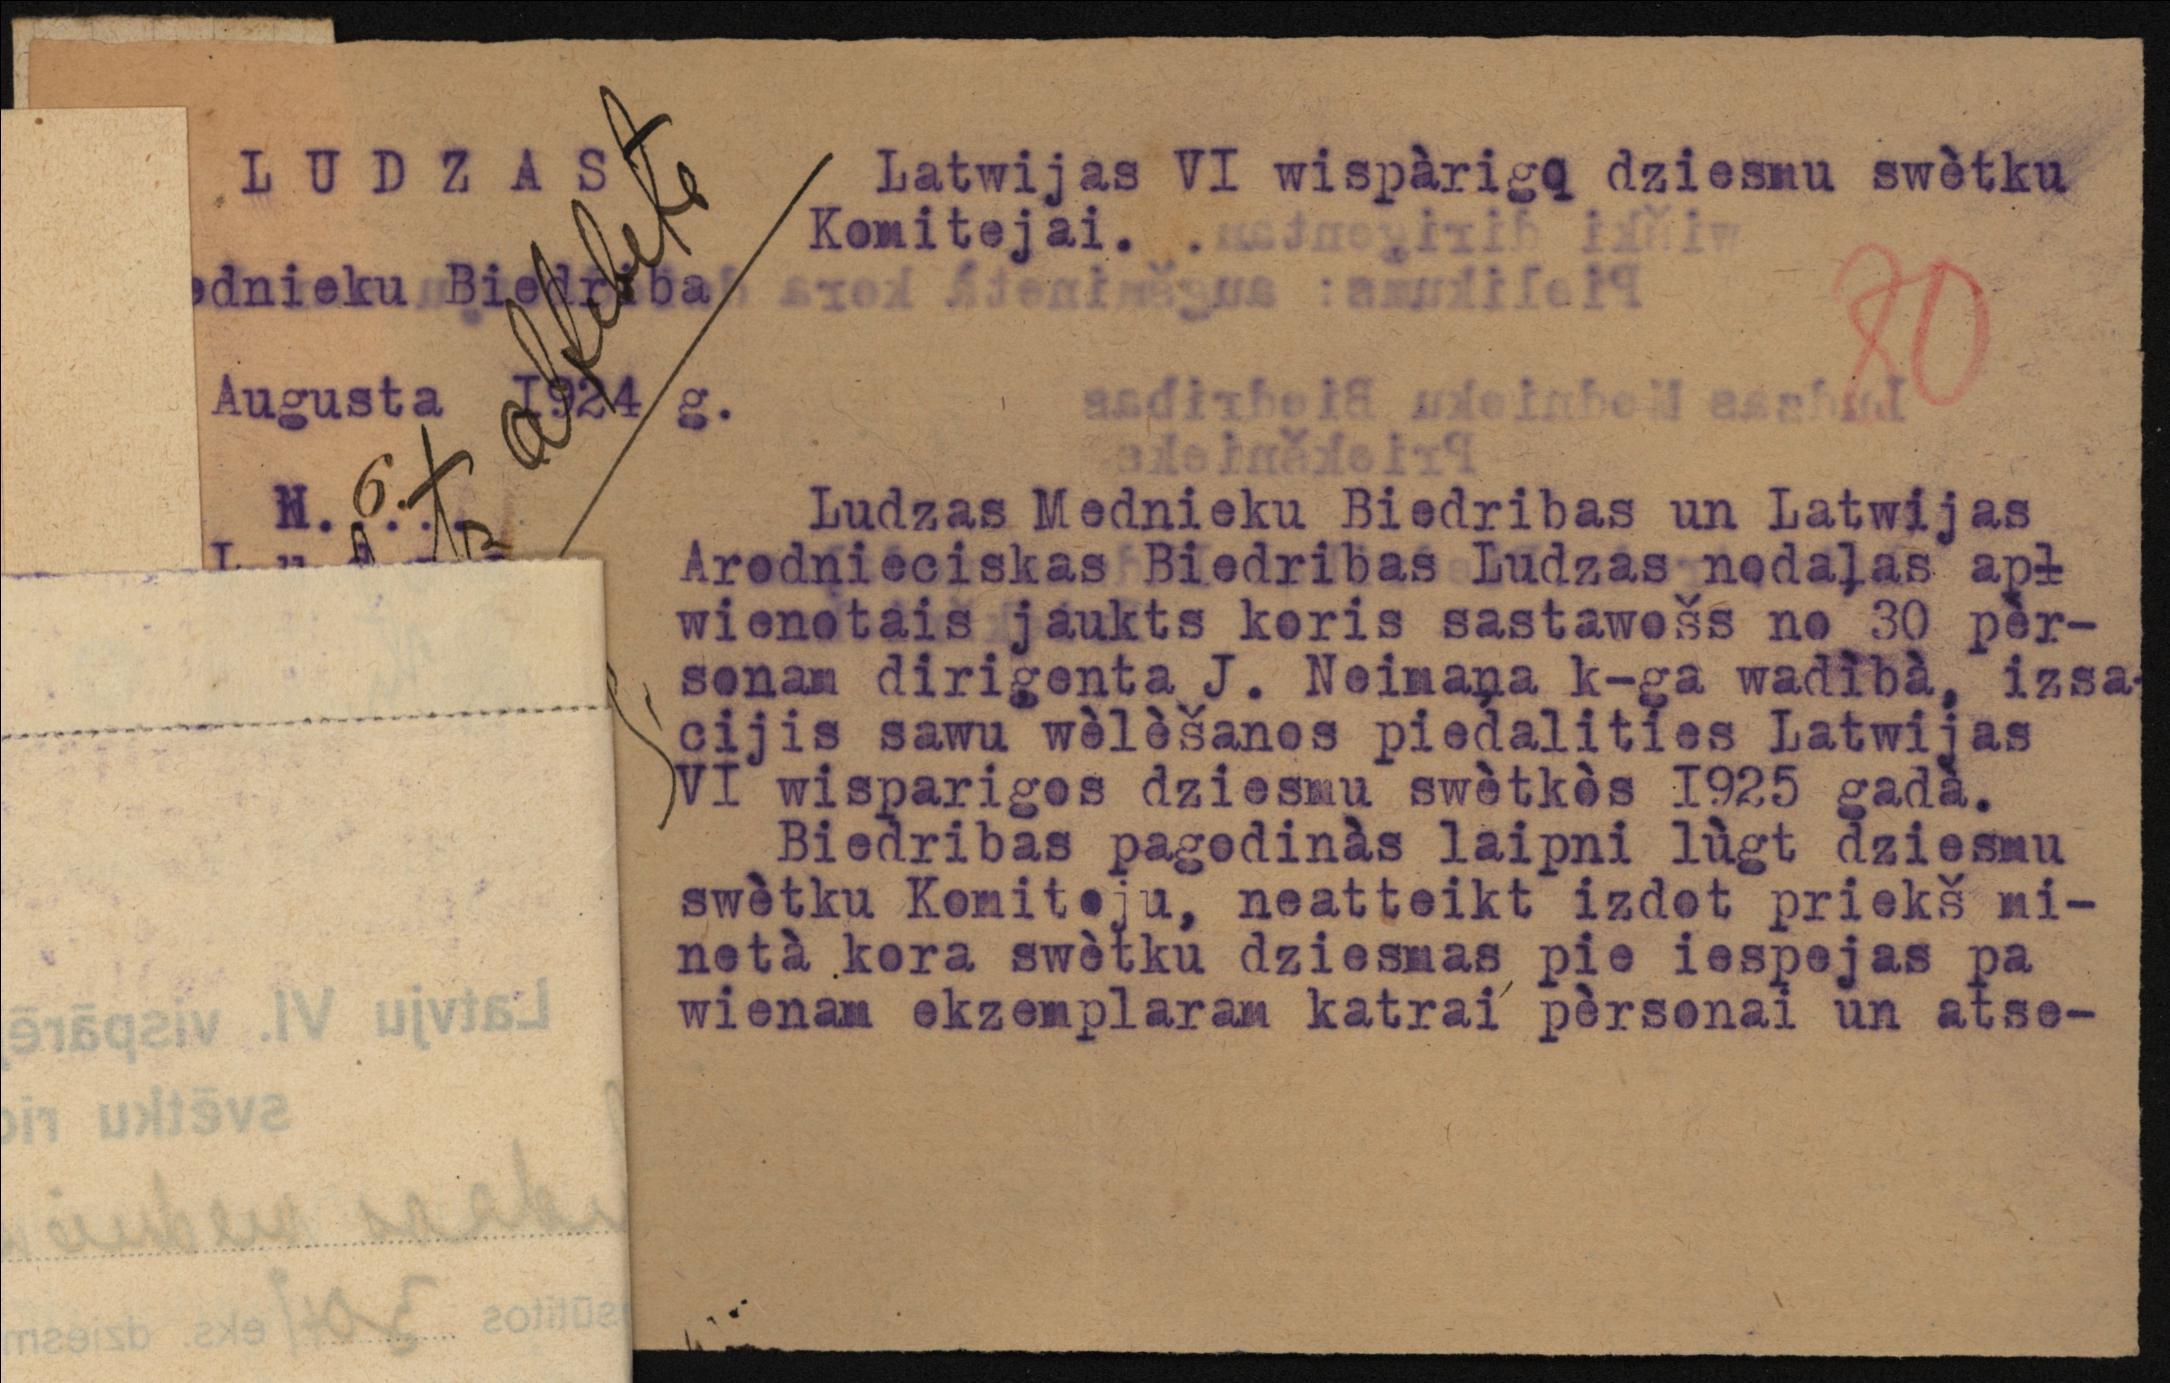 LUDZAS
ednieku Biedriba
Augusta 1924 g.
N. 6...
L u
atbildēts
Latwijas VI wispàrigo dziesmu swètku
Komitejai.
80
Ludzas Mednieku Biedribas un Latwijas
Arodņieciskas Biedribas Ludzas nodaļas ap
wienotais jaukts koris sastawošs no 30 pèr-
sonam diriģenta J. Neimaņa k-ga wadìbà, izsa-
cijis sawu wèlèšanos piedalities Latwijas
VI wisparigos dziesmu swètkòs 1925 gadà.
Biedribas pagodinàs laipni lùgt dziesmu
swètku Komiteju, neatteikt izdot priekš mi-
netà kora swètku dziesmas pie iespejas pa
wienam ekzemplaram katrai pèrsonai un atse-
wiški dirigentam.
Pielikums: augšminetà kora
Ludzas Mednieku Biedribas
Priekšnieks
Latvju VI. vispārē
svētku
30 eks. dziesm